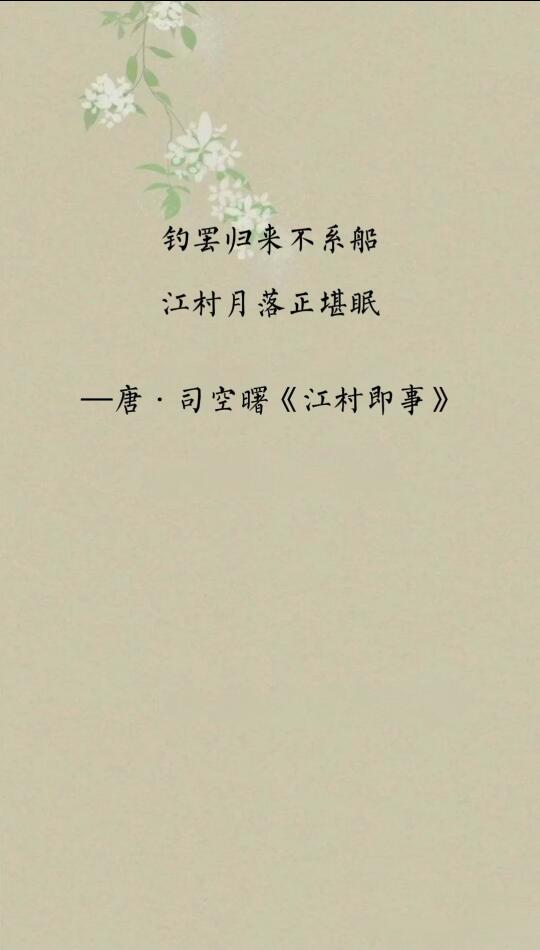 钓罢归来不系船
江村月落正堪眠
—唐·司空曙《江村即事》